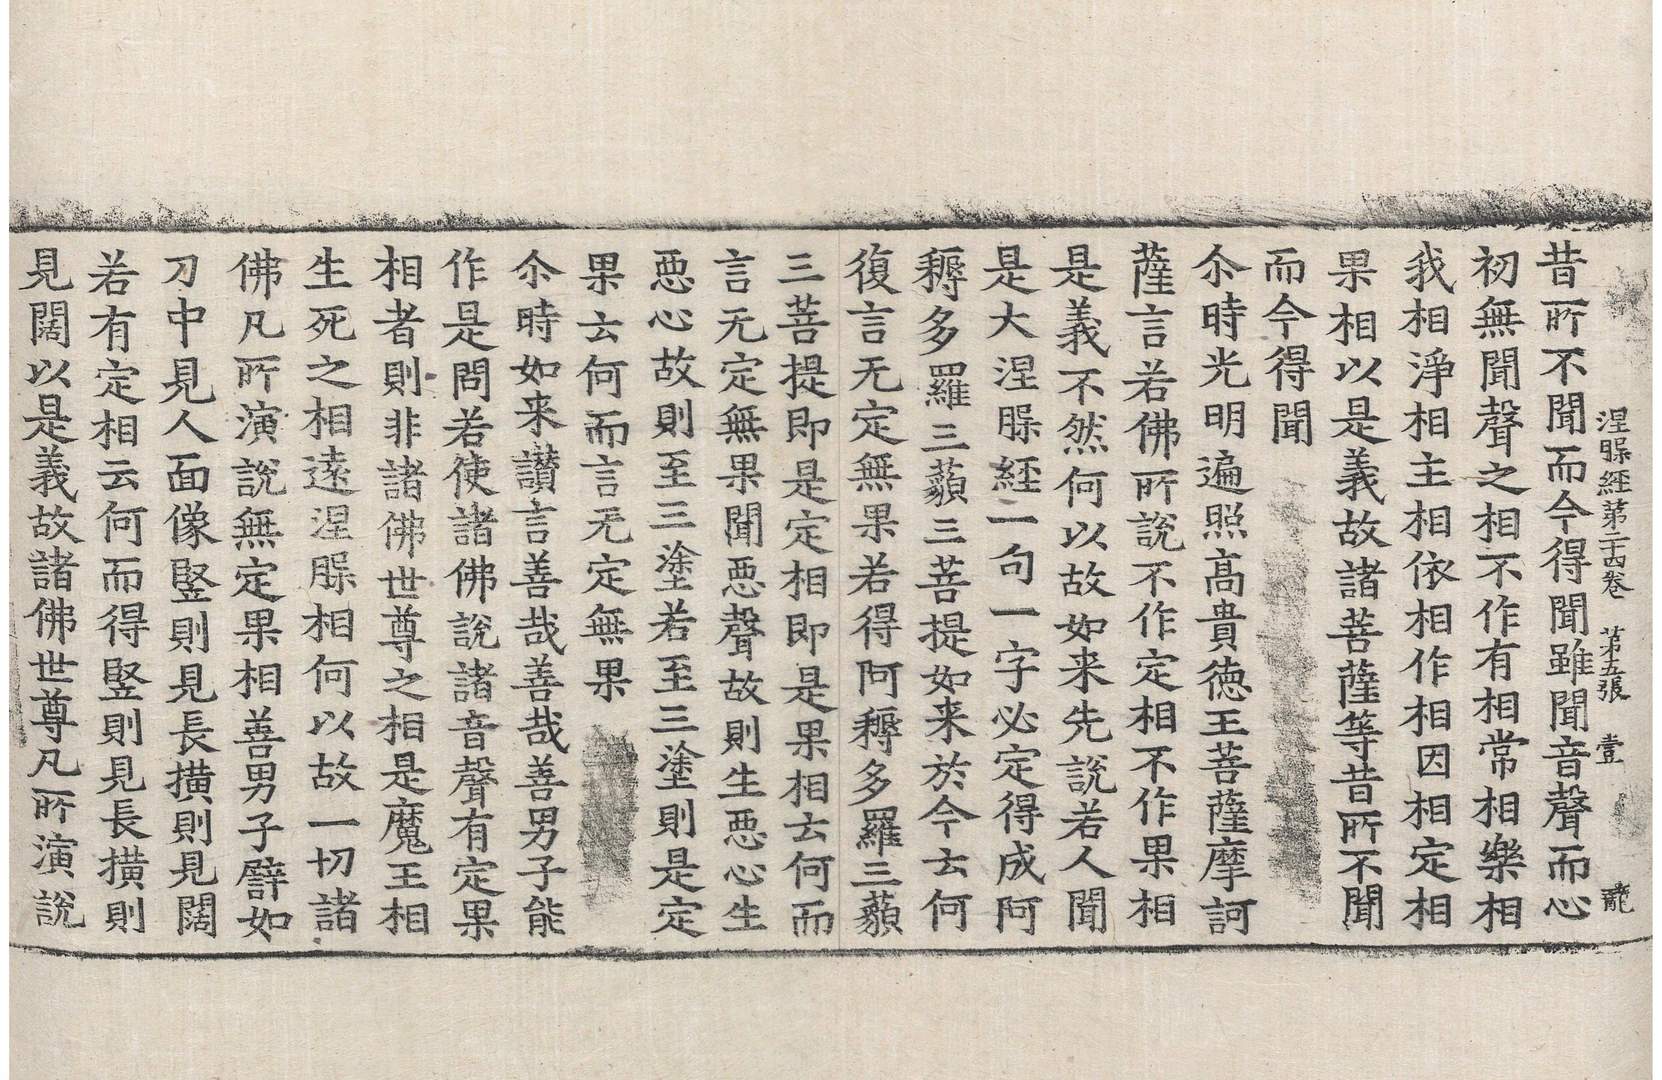 涅槃經第二十四卷 第五張 壹 龍
昔所不聞而今得聞雖聞音聲而心
初無聞聲之相不作有相常相樂相
我相淨相主相依相作相因相定相
果相以是義故諸菩薩等昔所不聞
而今得聞
尒時光明遍照高貴德王菩薩摩訶
薩言若佛所說不作定相不作果相
是義不然何以故如来先說若人聞
是大涅槃經一句一字必定得成阿
耨多羅三藐三菩提如来於今云何
復言无定無果若得阿耨多羅三藐
三菩提即是定相即是果相云何而
言无定無果聞悪聲故則生悪心生
悪心故則至三塗若至三塗則是定
果云何而言无定無果
尒時如来讃言善哉善哉善男子能
作是問若使諸佛說諸音聲有定果
相者則非諸佛世尊之相是魔王相
生死之相遠涅槃相何以故一切諸
佛凡所演說無定果相善男子譬如
刀中見人面像竪則見長撗則見闊
若有定相云何而得竪則見長撗則
見闊以是義故諸佛世尊凡所演說